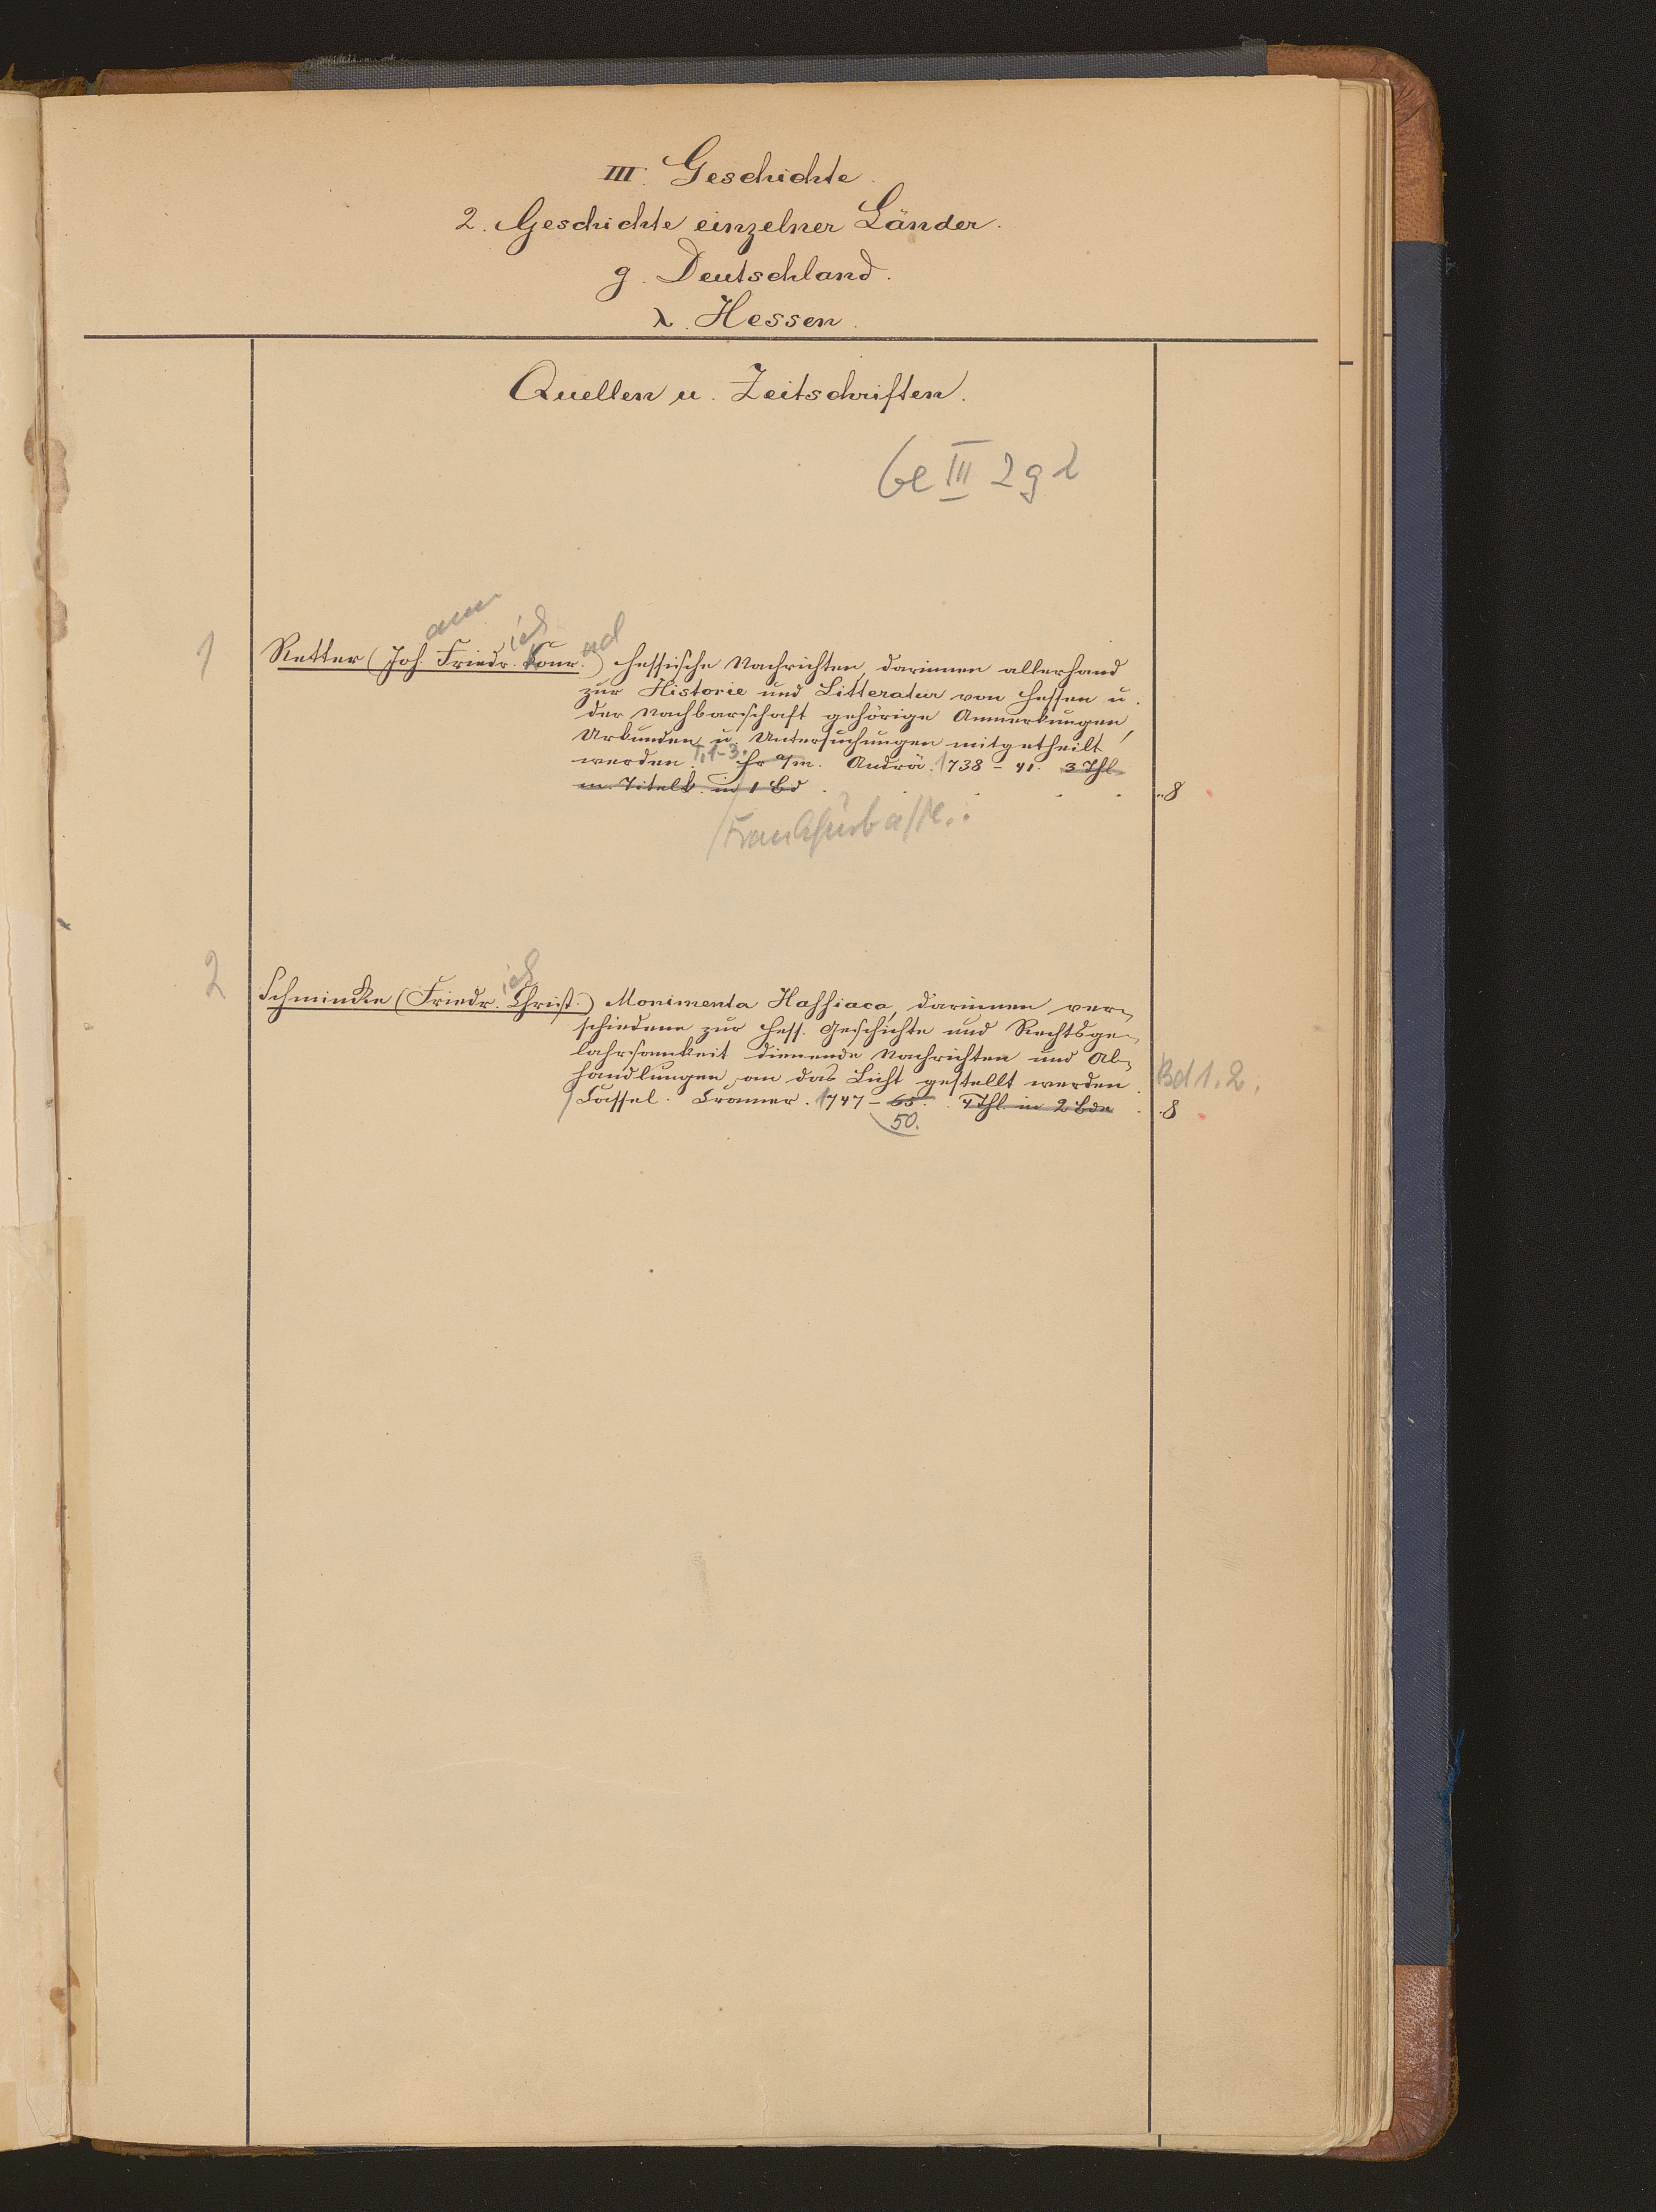 III. Geschichte.
2. Geschichte einzelner Länder.
g. Deutschland.
λ. Hessen.
Quellen u. Zeitschriften.
Ge III 2 g λ
ann ich ad
1 Retter (Joh. Friedr. Konr.) Hessische Nachrichten, darinnen allerhand
zur Historie und Litteratur von Hessen u.
der Nachbarschaft gehörige Anmerkungen,
Urkunden u. Untersuchungen mitgetheilt
werden. T. 1-3. Fr a/m. Andrä. 1738-41. 3 Thl.
m. Titelk. in 1 Bd . . . . 8
Frankfurt a/M.:
ich
2 Schmincke (Friedr. Christ.) Monimenta Hassiaca, darinnen ver-
schiedene zur Hess. Geschichte und Rechtsge-
lahrsamkeit dienende Nachrichten und Ab-
handlungen an das Licht gestellt werden. Bd 1. 2.
Cassel. Cramer. 1747-65. 4 Thl. in 2 Bdn . . 8
50.